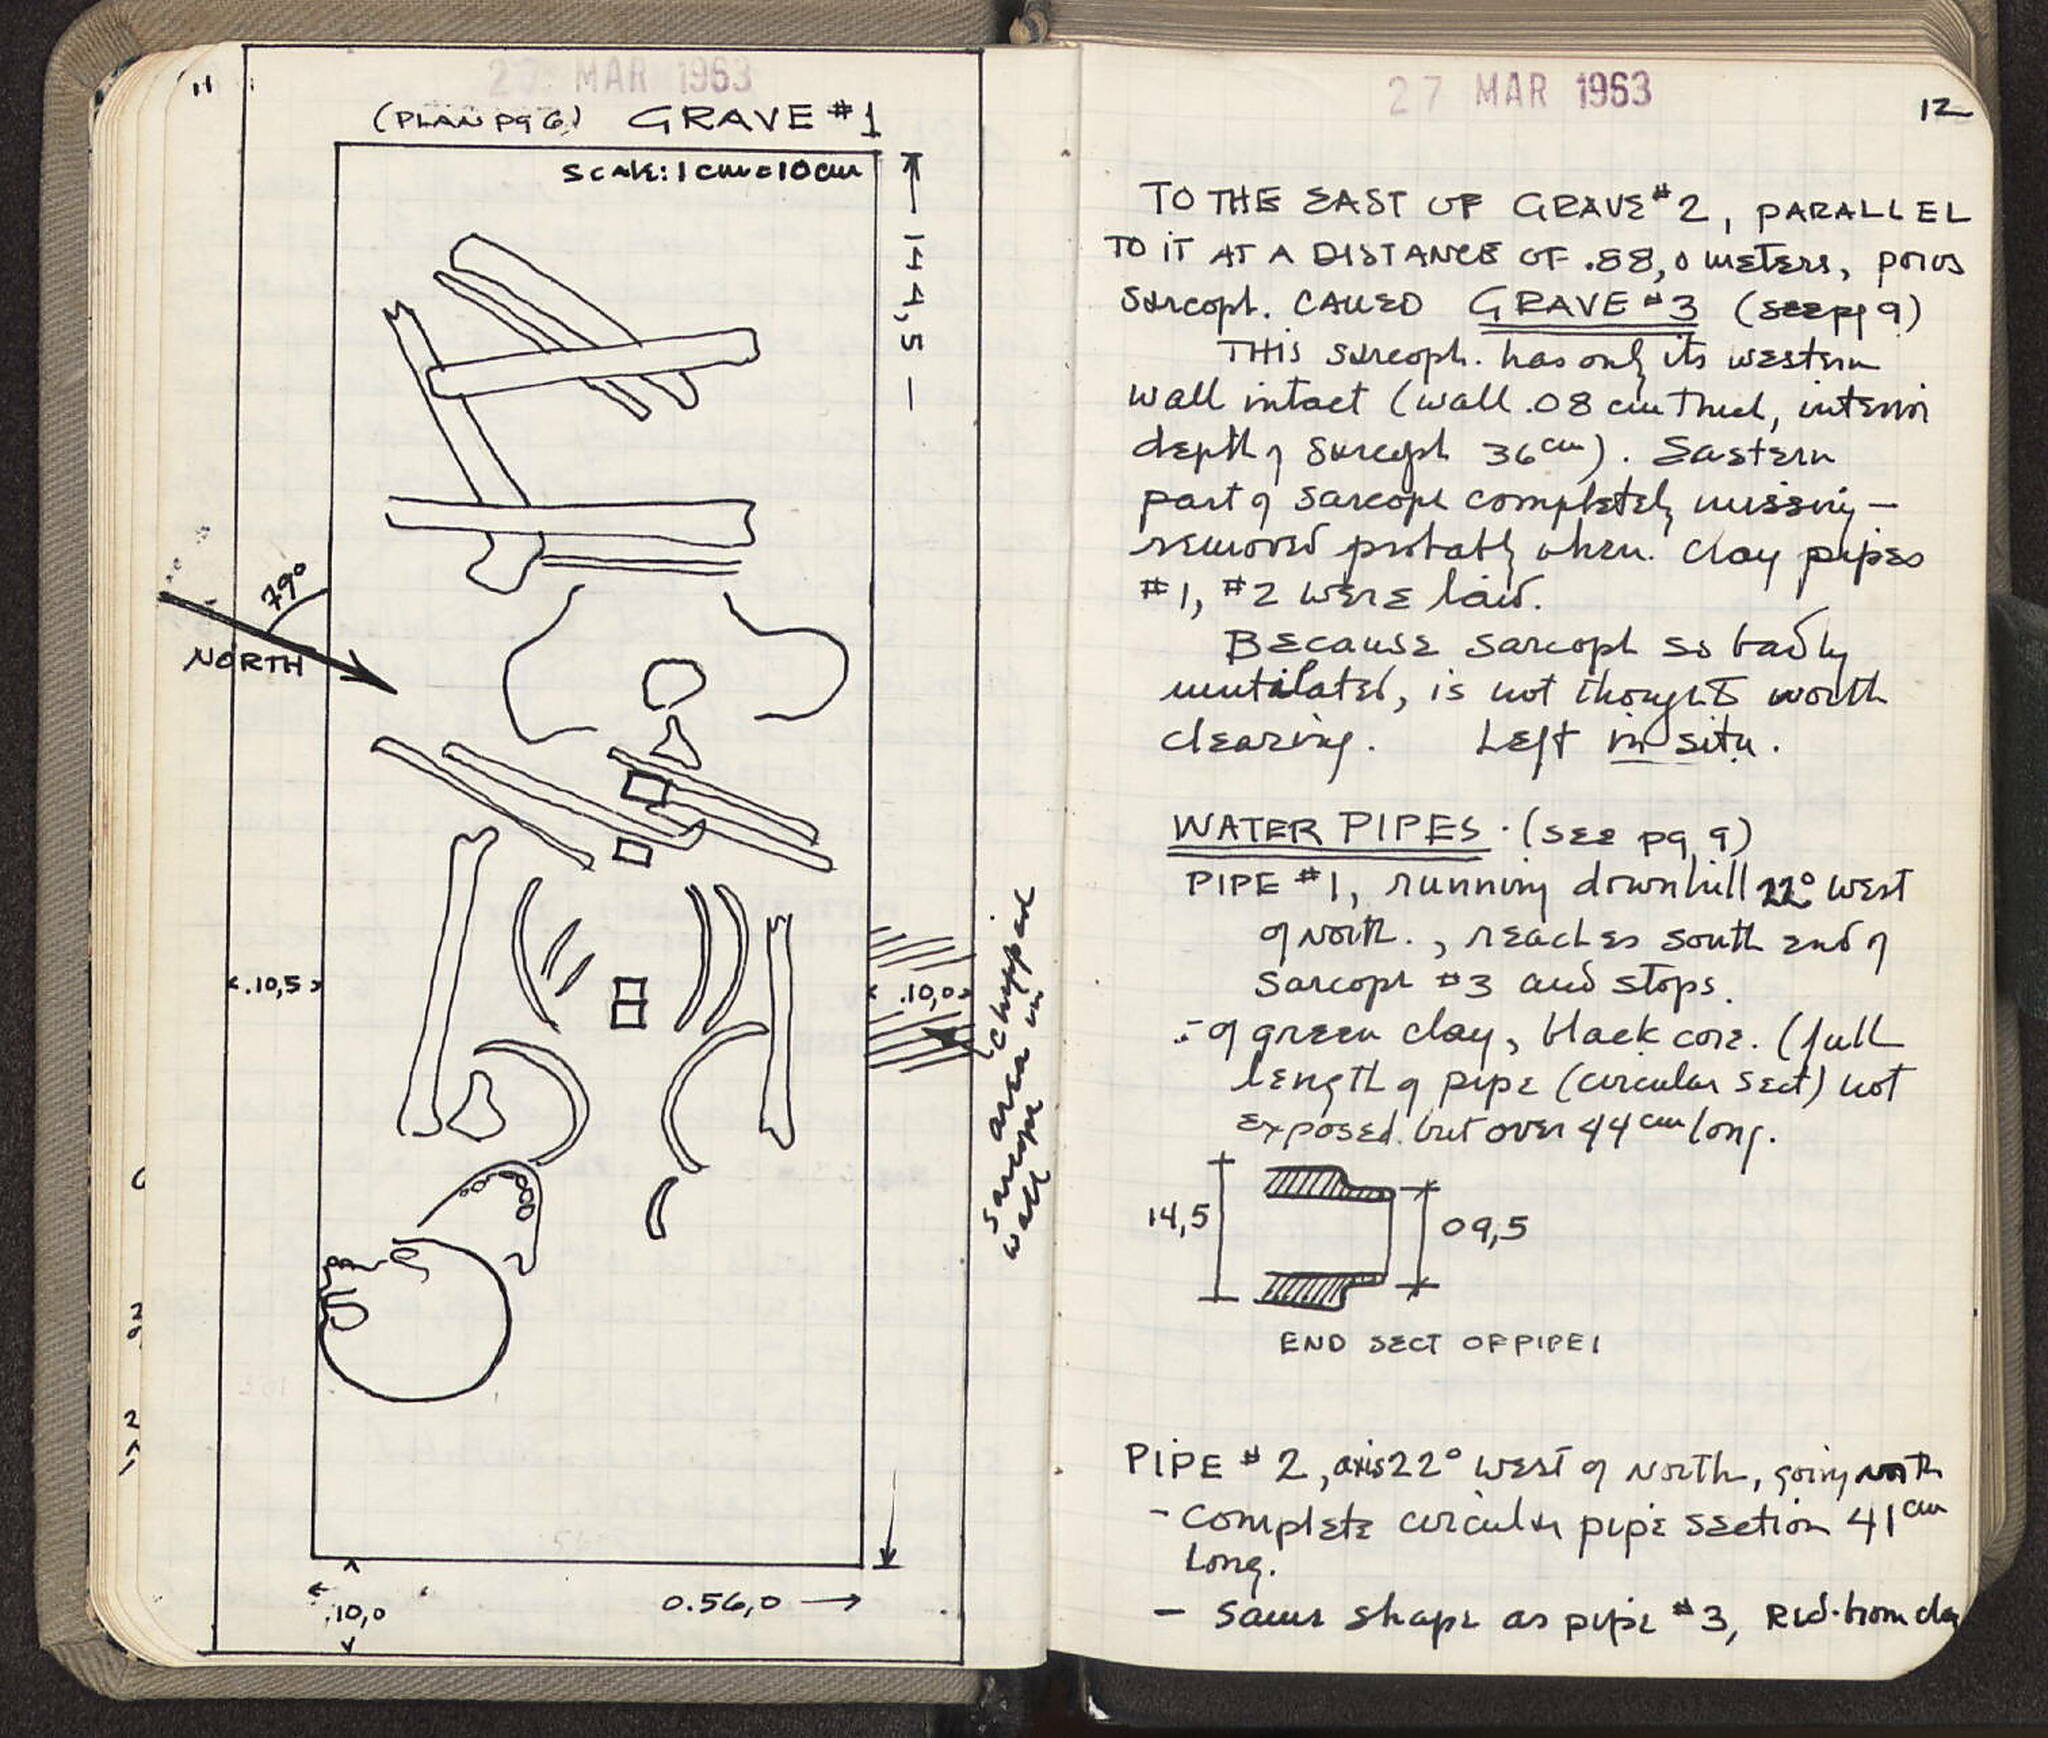 11
27 MAR 1963
(PLAN pg 6) GRAVE #1
SCALE: 1 cm = 10 cm
79°
NORTH
.10,5
.10,0
chipped
area in
sarcoph
wall
.10,0
0.56,0
27 MAR 1963
12
TO THE EAST OF GRAVE #2, PARALLEL
TO IT AT A DISTANCE OF .88,0 METERS, poros
sarcoph. CALLED GRAVE #3 (see pg 9)
THIS sarcoph. has only its western
wall intact (wall .08 cm thick, interior
depth of sarcoph 36 cm). Eastern
part of sarcoph completely missing —
removed probably when. clay pipes
#1, #2 were laid.
Because sarcoph so badly
mutilated, is not thought worth
clearing. Left in situ.
WATER PIPES. (SEE pg 9)
PIPE #1, running downhill 22° west
of north., reaches south end of
sarcoph #3 and stops.
- of green clay, black core. (full
length of pipe (circular sect) not
exposed. but over 44 cm long.
14,5
09,5
END SECT OF PIPE 1
PIPE #2, axis 22° west of north, going north
- Complete circular pipe section 41 cm
long.
- Same shape as pipe #3, Red-brown clay